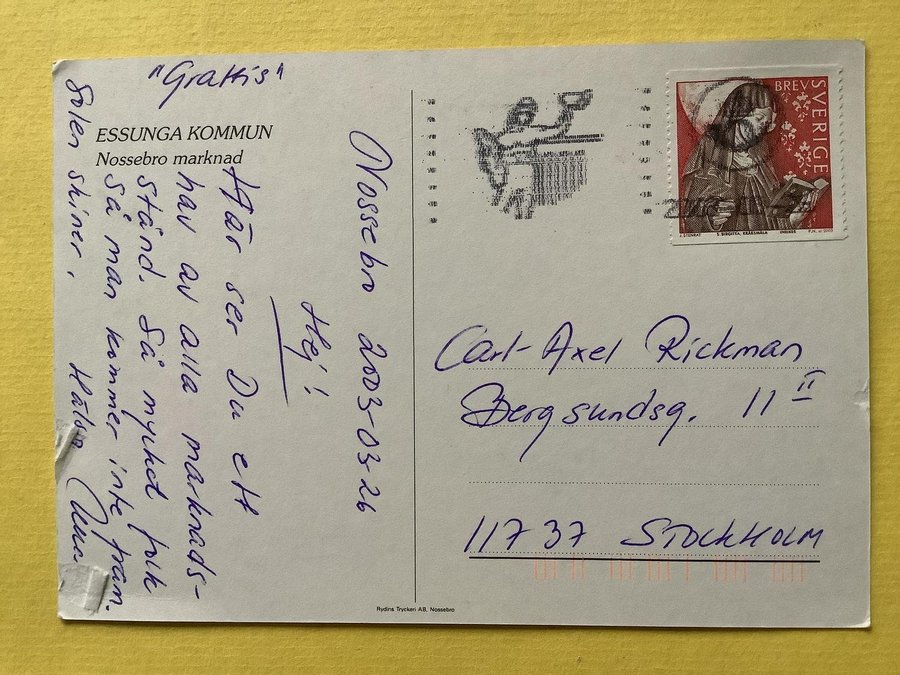 "Grattis"
ESSUNGA KOMMUN
Nossebro marknad
Nossebro 2003-03-26
Hej!
Här ser Du ett
hav av alla marknads-
stånd. Så mycket folk
så man kommer inte fram.
Solen skiner. Hälsn
Carl-Axel Rickman
Bergsundsg. 11 II
11737 STOCKHOLM
BREV
SVERIGE
S. BIRGITTA, KRÄKSMÅLA
Rydins Tryckeri AB, Nossebro